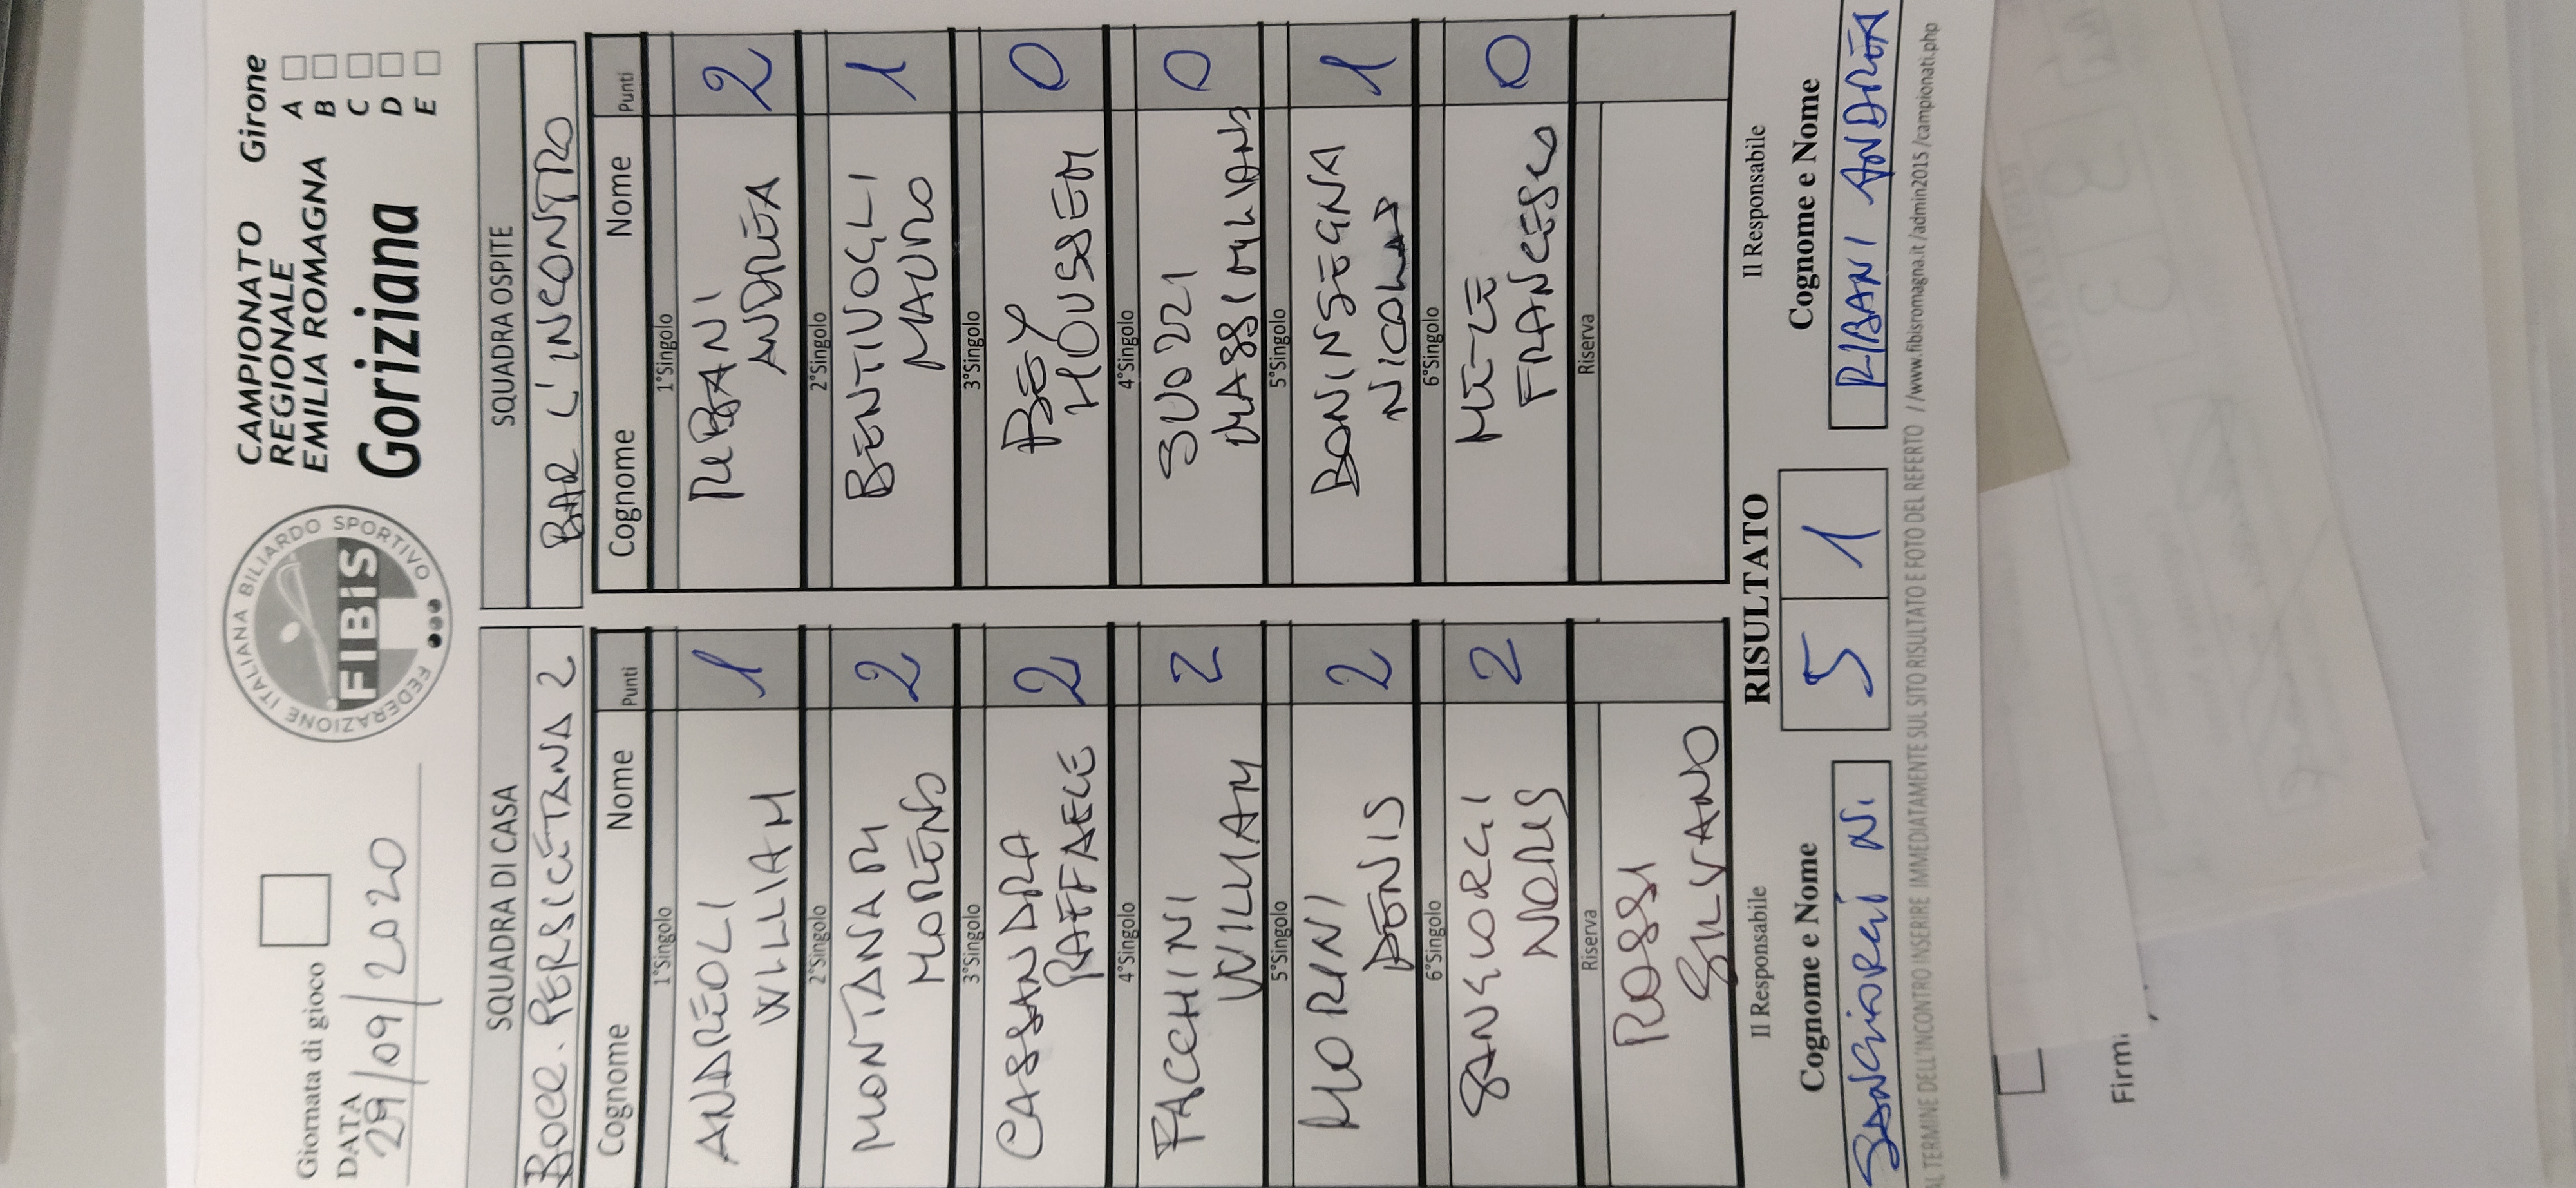 Giornata di gioco
DATA
29/09/2020
FEDERAZIONE ITALIANA BILIARDO SPORTIVO
FIBiS
CAMPIONATO
REGIONALE
EMILIA ROMAGNA
Goriziana
Girone
A
B
C
D
E
SQUADRA DI CASA
BOCC. PERSICETANA 2
Cognome Nome Punti
1°Singolo
ANDREOLI
WILLIAM 1
2°Singolo
MONTANARI
MORENO 2
3°Singolo
CASSANDRA
RAFFAELE 2
4°Singolo
FACCHINI
WILLIAM 2
5°Singolo
MORINI
DENIS 2
6°Singolo
SANGIORGI
NORIS 2
Riserva
ROSSI
SILVANO
SQUADRA OSPITE
BAR L'INCONTRO
Cognome Nome Punti
1°Singolo
ANDREA 2
2°Singolo
BENTIVOGLI
MAURO 1
3°Singolo
BEY
HOUSSEM 0
4°Singolo
SUOZZI
MASSIMILIANO 0
5°Singolo
BONINSEGNA
NICOLAS 1
6°Singolo
FRANCESCO 0
Riserva
Il Responsabile
RISULTATO
Il Responsabile
Cognome e Nome
SANGIORGI N.
5 1
Cognome e Nome
RIBANI ANDREA
AL TERMINE DELL'INCONTRO INSERIRE IMMEDIATAMENTE SUL SITO RISULTATO E FOTO DEL REFERTO //www.fibisromagna.it/admin2015/campionati.php
Firm